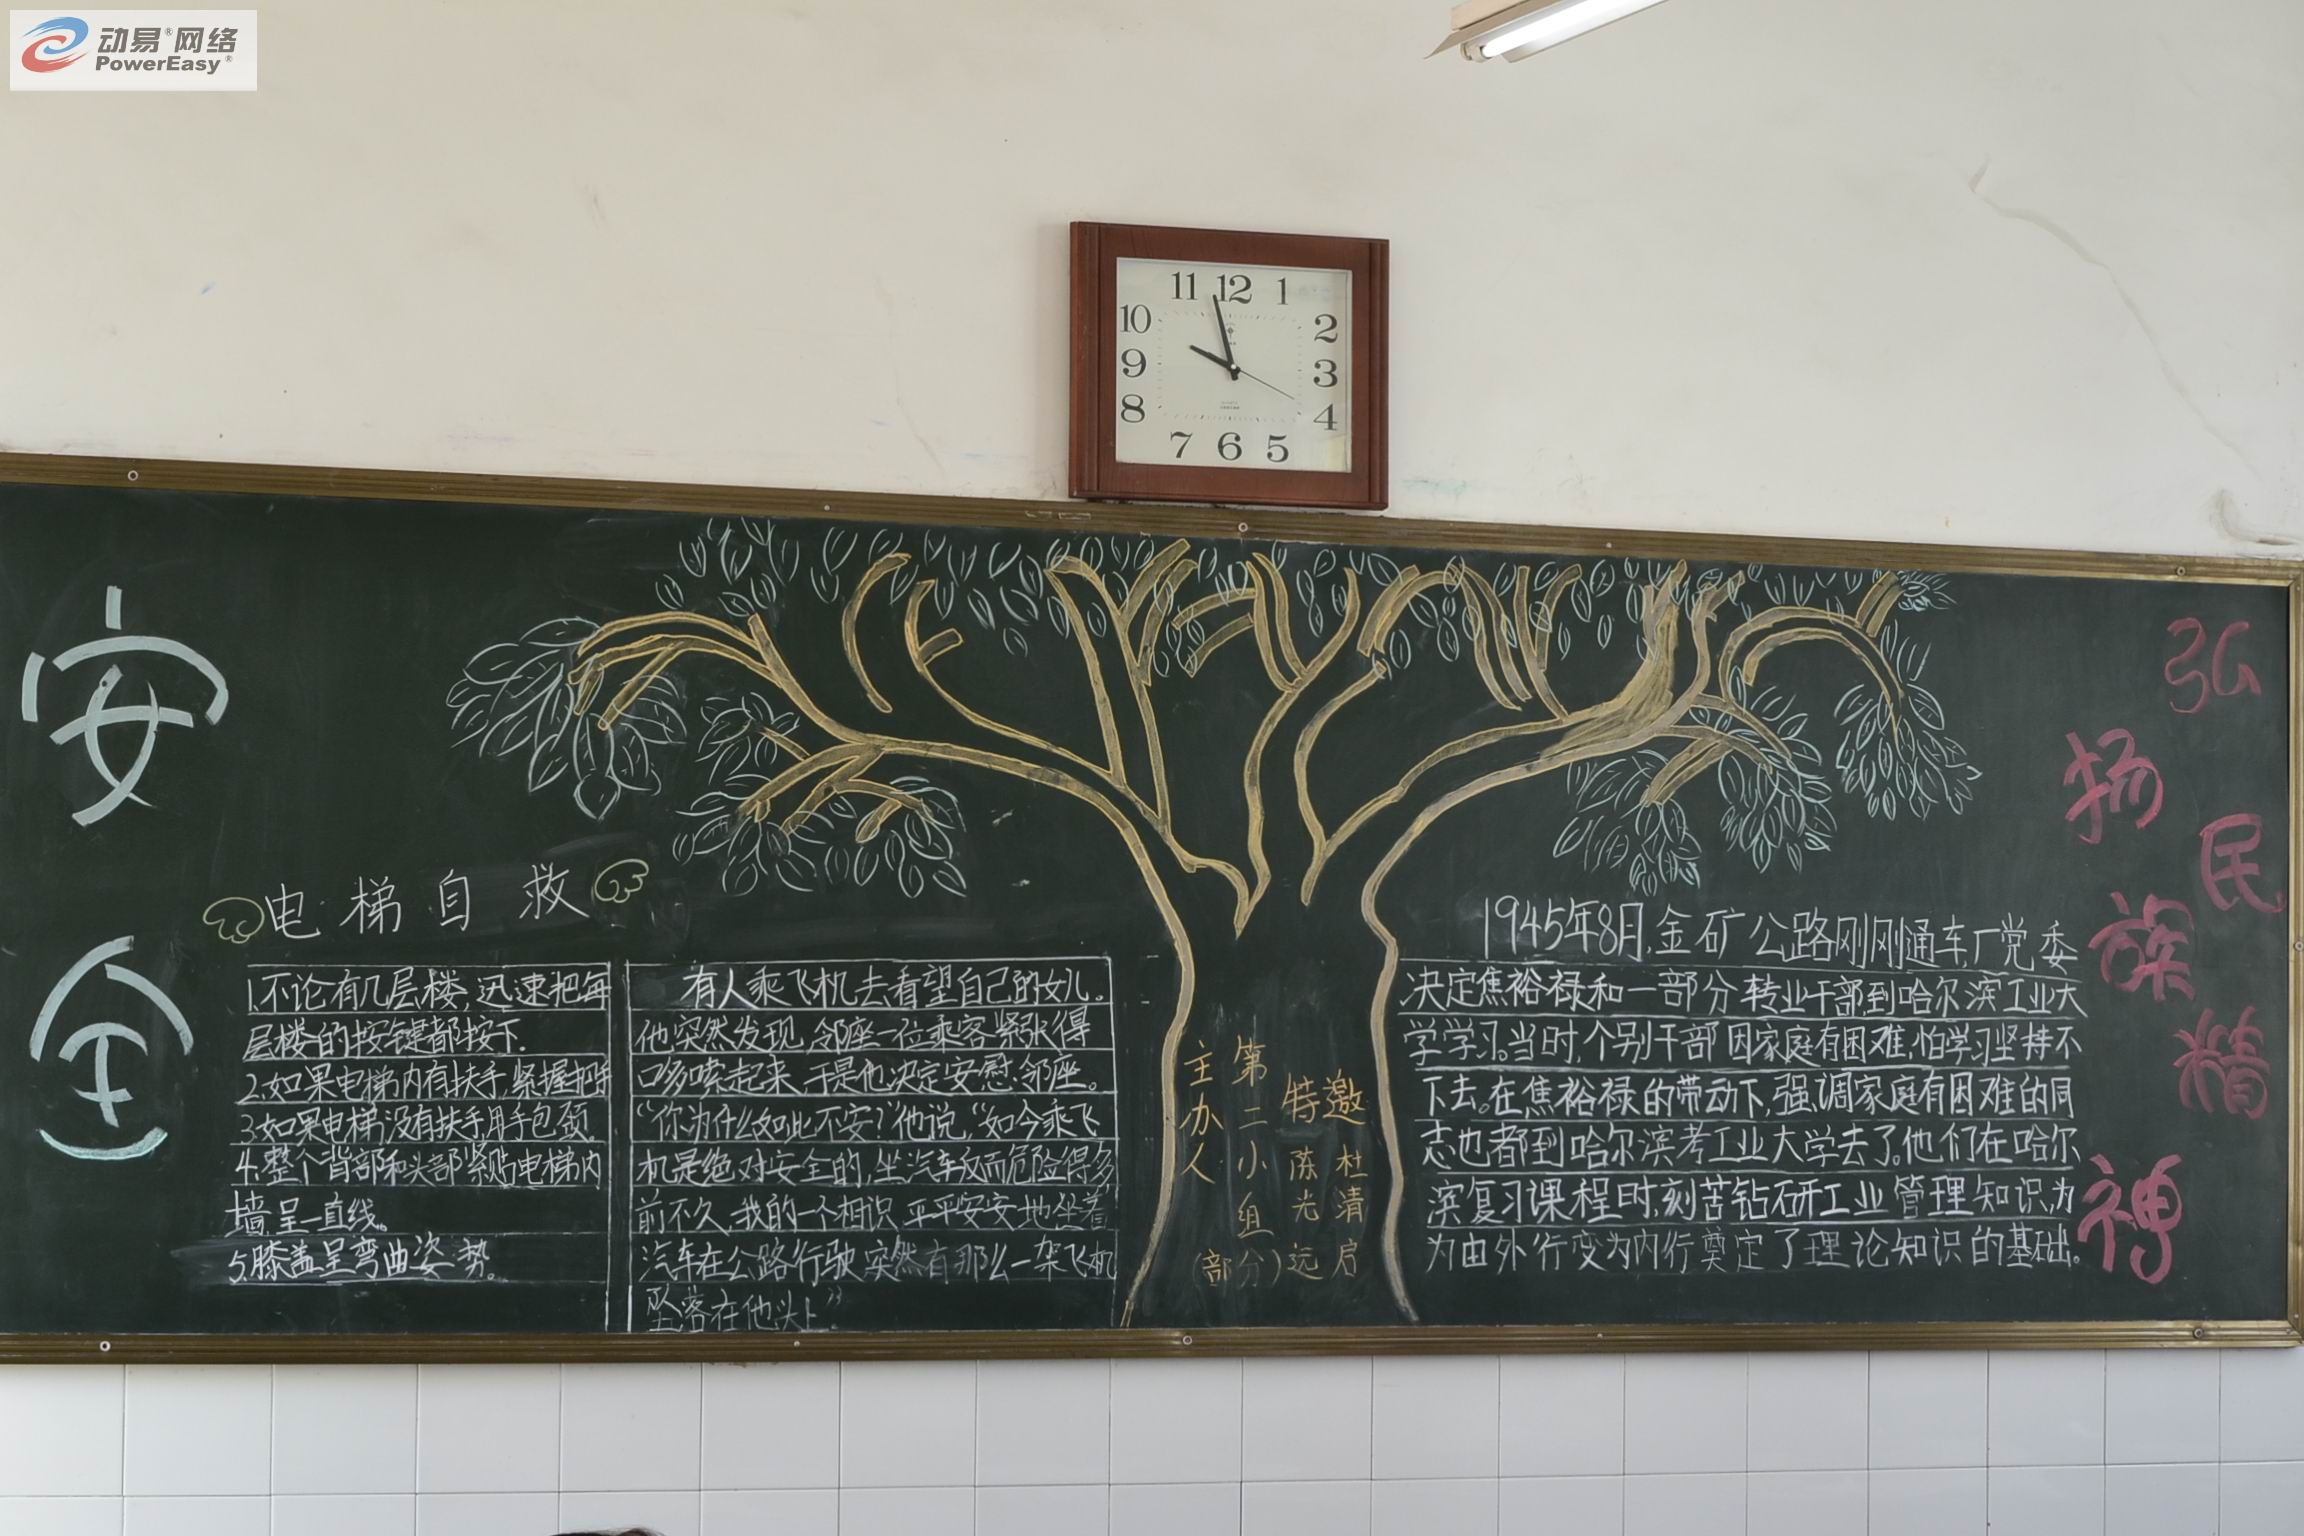 动易®网络
PowerEasy®
11 12 1
10 2
9 3
8 4
7 6 5
安全
电梯自救
1.不论有几层楼,迅速把每
层楼的按键都按下.
2.如果电梯内有扶手,紧握把手
3.如果电梯没有扶手用手包颈.
4.整个背部和头部紧贴电梯内
墙呈一直线。
5.膝盖呈弯曲姿势。
有人乘飞机去看望自己的女儿。
他突然发现,邻座一位乘客紧张得
哆嗦起来,于是他决定安慰邻座。
“你为什么如此不安?”他说,“如今乘飞
机是绝对安全的,坐汽车反而危险得多
前不久,我的一个相识平平安安地坐着
汽车在公路行驶,突然有那么一架飞机
坠落在他头上.”
主办人
第二小组
(部分)
特邀
陈光远
杜清启
1945年8月,金矿公路刚刚通车,厂党委
决定焦裕禄和一部分转业干部到哈尔滨工业大
学学习。当时,个别干部因家庭有困难,怕学习坚持不
下去。在焦裕禄的带动下,强调家庭有困难的同
志也都到哈尔滨考工业大学去了。他们在哈尔
滨复习课程时,刻苦钻研工业管理知识,为
为由外行变为内行奠定了理论知识的基础。
弘扬民族精神